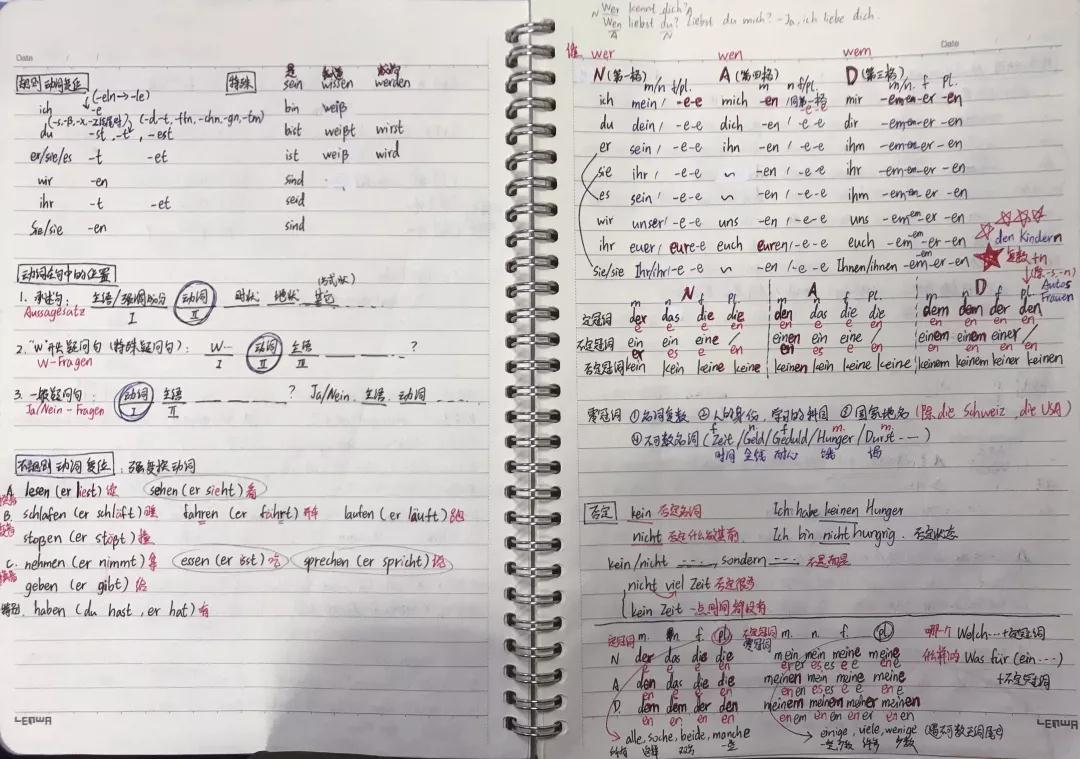 Date
规则动词变位 特殊 是 sein 知道 wissen 成为 werden
(-eln → -le)
ich -e bin weiß
(-s,-ß,-x,-z结尾时) (-d,-t,-ffn,-chn,-gn,-tm)
du -st, -t, -est bist weißt wirst
er/sie/es -t -et ist weiß wird
wir -en sind
ihr -t -et seid
Sie/sie -en sind
动词在句中的位置
1. 陈述句: 主语/强调成分 动词 时状 地状 其它
Aussagesatz I II
2. "W"开头疑问句 (特殊疑问句): W... 动词 主语 ?
W-Fragen I II III
3. 一般疑问句: 动词 主语 ? Ja/Nein, 主语 动词
Ja/Nein-Fragen I II
不规则动词变位: 强变换动词
A. lesen (er liest) 读 sehen (er sieht) 看
B. schlafen (er schläft) 睡 fahren (er fährt) 开车 laufen (er läuft) 跑
stoßen (er stößt) 撞
C. nehmen (er nimmt) 拿 essen (er isst) 吃 sprechen (er spricht) 说
geben (er gibt) 给
特别. haben (du hast, er hat) 有
LENWA
N Wer kennt dich? A
Wen liebst du? Liebst du mich? - Ja, ich liebe dich.
A N
谁 wer wen wem
Date
N (第一格) A (第四格) D (第三格)
m/n f/pl. m n f/pl. m/n. f pl.
ich mein / -e-e mich -en /同第一格 mir -em-em-er -en
e-e
du dein / -e-e dich -en / -e-e dir -em-em-er -en
er sein / -e-e ihn -en / -e-e ihm -em-em-er -en
sie ihr / -e-e ~ -en / -e-e ihr -em-em-er -en
es sein / -e-e ~ -en / -e-e ihm -em-em-er -en
wir unser/ -e-e uns -en / -e-e uns -em-em-er -en
ihr euer/ eure-e euch euren/-e-e euch -em-em-er-en
den Kindern
Sie/sie Ihr/ihr/-e-e ~ -en /-e-e Ihnen/ihnen -em-em-er-en
复数+n
(除-s,-n)
Autos
Frauen
N A D
m n f pl. m n f pl. m n f pl
定冠词 der das die die den das die die dem dem der den
e e e en en e e en en en en en
不定冠词 ein ein eine / einen ein eine / einem einem einer /
er es e en en es e en en en en en
否定冠词 kein kein keine keine keinen kein keine keine keinem keinem keiner keinen
零冠词 ①名词复数 ②人的身份, 学习的科目 ③国家地名 (除 die Schweiz, die USA)
f. n. f. m. m.
④不可数名词 (Zeit /Geld/Geduld/Hunger /Durst ...)
时间 金钱 耐心 饿 渴
否定 kein 否定名词 Ich habe keinen Hunger
nicht 否定什么放其前 Ich bin nicht hungrig. 否定状态
kein/nicht ..., sondern ... 不是而是
nicht viel Zeit 否定很多
kein Zeit 一点时间都没有
定冠词 m. n f. pl 不定冠词 m. n. f. pl 哪个 Welch...+定冠词
零冠词
N der das die die mein mein meine meine 什么样的 Was für (ein ...)
e e e en er er es es e e en e
A. den das die die meinen mein meine meine +不定冠词
en e e en en en es es e e en e
D. dem dem der den meinem meinem meiner meinen
en en en en en em en em en er en en
alle, solche, beide, manche einige, viele, wenige
所有 这样 双方 一些 一些 许多 少数
LENWA